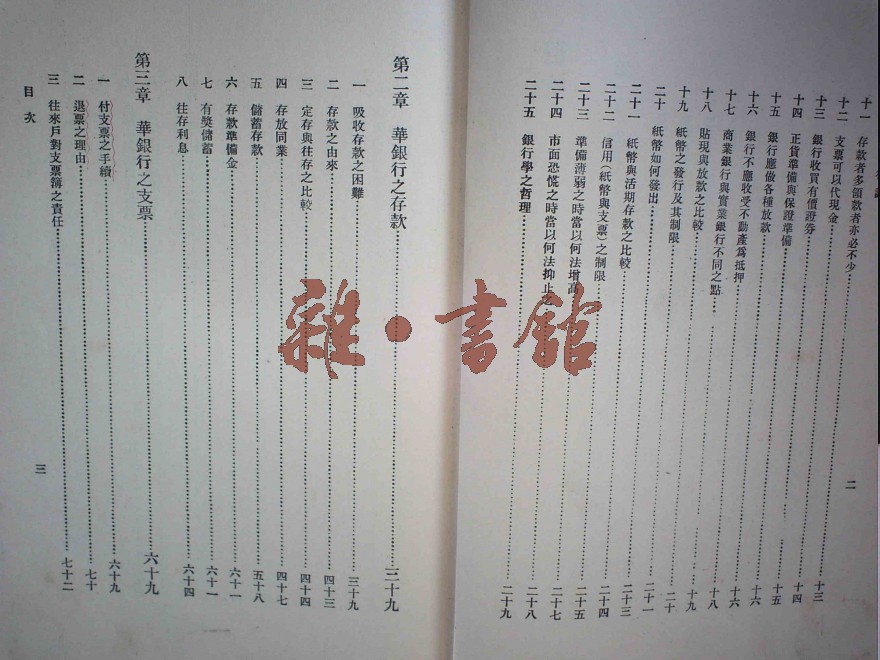 十一　存款者多領款者亦必不少……十三
十二　支票可以代現金……十四
十三　銀行收買有價證券……十五
十四　正貨準備與保證準備……十六
十五　銀行應做各種放款……十六
十六　銀行不應收受不動產爲抵押……十八
十七　商業銀行與實業銀行不同之點……十九
十八　貼現與放款之比較……二十
十九　紙幣之發行及其制限……二十一
二十　紙幣如何發出……二十三
二十一　紙幣與活期存款之比較……二十四
二十二　信用（紙幣與支票）之制限……二十五
二十三　準備薄弱之時當以何法增高……二十七
二十四　市面恐慌之時當以何法抑止之……二十八
二十五　銀行學之哲理……二十九
二
第二章　華銀行之存款……三十九
一　吸收存款之困難……三十九
二　存款之由來……四十三
三　定存與往存之比較……四十四
四　存放同業……四十七
五　儲蓄存款……五十八
六　存款準備金……六十一
七　有獎儲蓄……六十一
八　往存利息……六十四
第三章　華銀行之支票……六十九
一　付支票之手續……六十九
二　退票之理由……七十
三　往來戶對支票簿之責任……七十二
目次
三
雜·書館